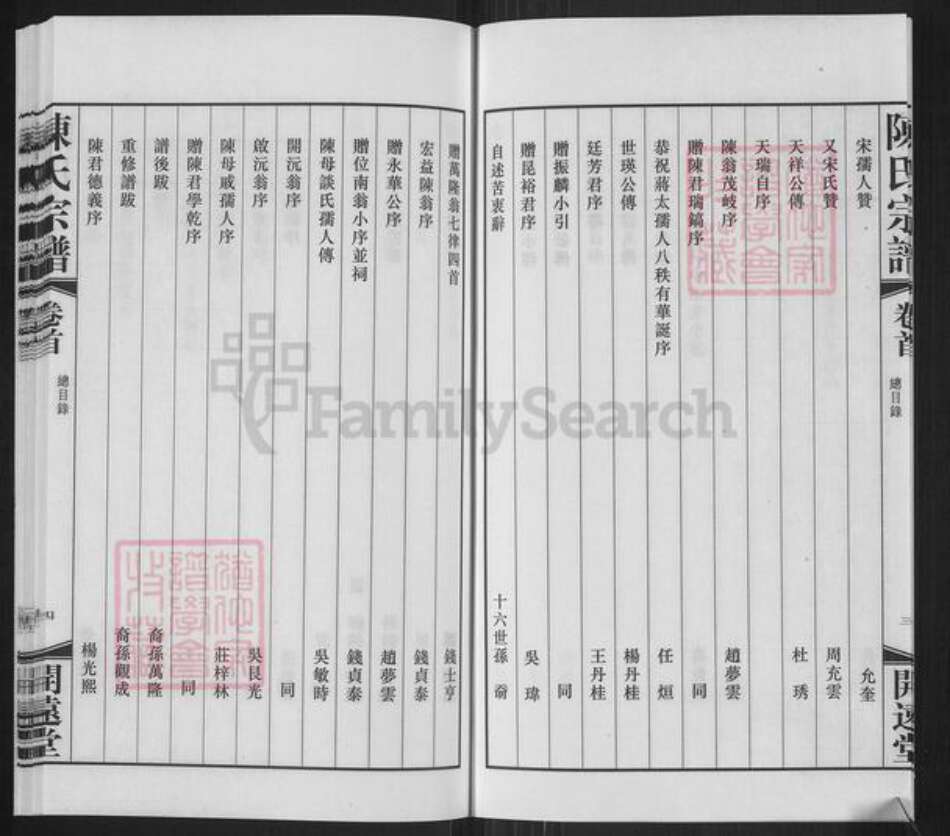 陳氏宗譜 卷首 總目錄 三 開遠堂
宋孺人贊 允奎
又宋氏贊 周充雲
天祥公傳 杜琇
天瑞自序
陳翁茂岐序 趙夢雲
贈陳君瑞鎬序 同
恭祝蔣太孺人八秩有華誕序 任烜
世瑛公傳 楊丹桂
廷芳君序 王丹桂
贈振麟小引 同
贈昆裕君序 吳瑋
自述苦衷辭 十六世孫
贈萬隆翁七律四首 錢士亨
宏益陳翁序 錢貞泰
贈永華公序 趙夢雲
贈位南翁小序並祠 錢貞泰
陳母談氏孺人傳 吳敏時
開沅翁序 同
啟沅翁序 吳艮光
陳母戚孺人序 莊梓林
贈陳君學乾序 同
譜後跋 裔孫萬隆
重修譜跋 裔孫觀成
陳君德義序 楊光熙
陳氏宗譜 卷首 總目錄 四 開遠堂
FamilySearch